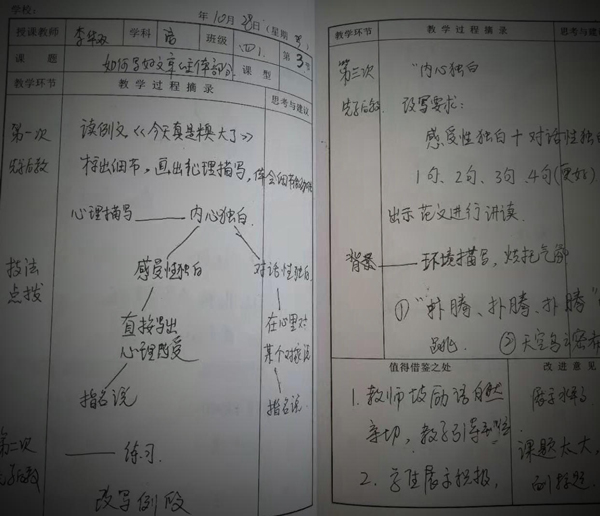 学校：
年 10 月 28 日（星期 ）
授课教师 学科 语 班级 （四） 第 3 节
课题 如何写好文章主体部分 课型
教学环节 教学过程摘录 思考与建议
第一次 先学后教
读例文《今天真是糗大了》
标出细节，画出心理描写，体会细节
心理描写 —— 内心独白
感受性独白 对话性独白
技法点拨
直接写出心理感受
在心里对某个对象说
指名说 指名说
第二次 先学后教
—— 练习
改写例段
教学环节 教学过程摘录 思考与建
第三次 先学后教
"内心独白
改写要求：
感受性独白＋对话性独白
1句、2句、3句、4句（更好）
出示范文进行讲读．
背景 —— 环境描写，烘托气氛
① "扑腾、扑腾、扑腾"
心跳
② 天空乌云密布
值得借鉴之处 改进意见
1. 教师鼓励语自然亲切，教学引导
2. 学生展示积极，
课题太大，